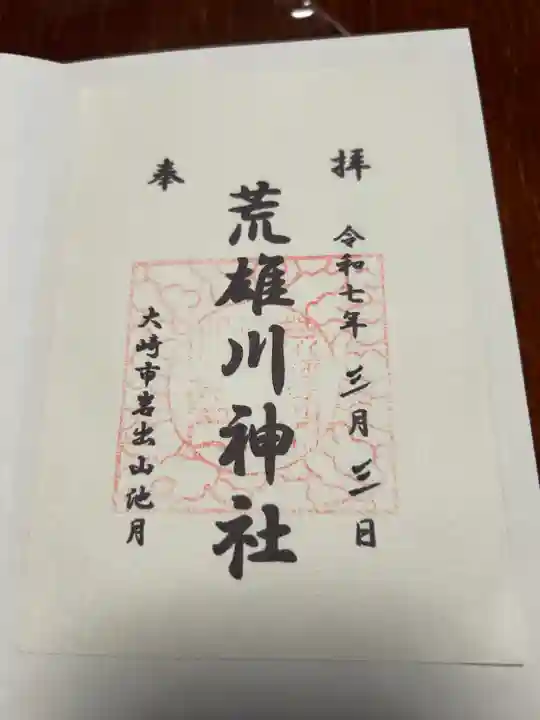 奉拝
令和七年三月三日
荒雄川神社
大崎市岩出山池月